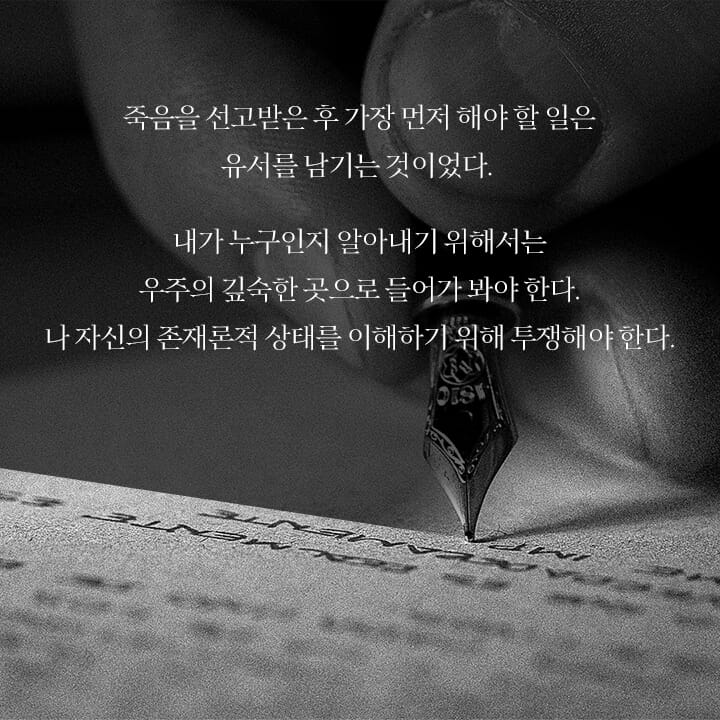 죽음을 선고받은 후 가장 먼저 해야 할 일은
유서를 남기는 것이었다.
내가 누구인지 알아내기 위해서는
우주의 깊숙한 곳으로 들어가 봐야 한다.
나 자신의 존재론적 상태를 이해하기 위해 투쟁해야 한다.